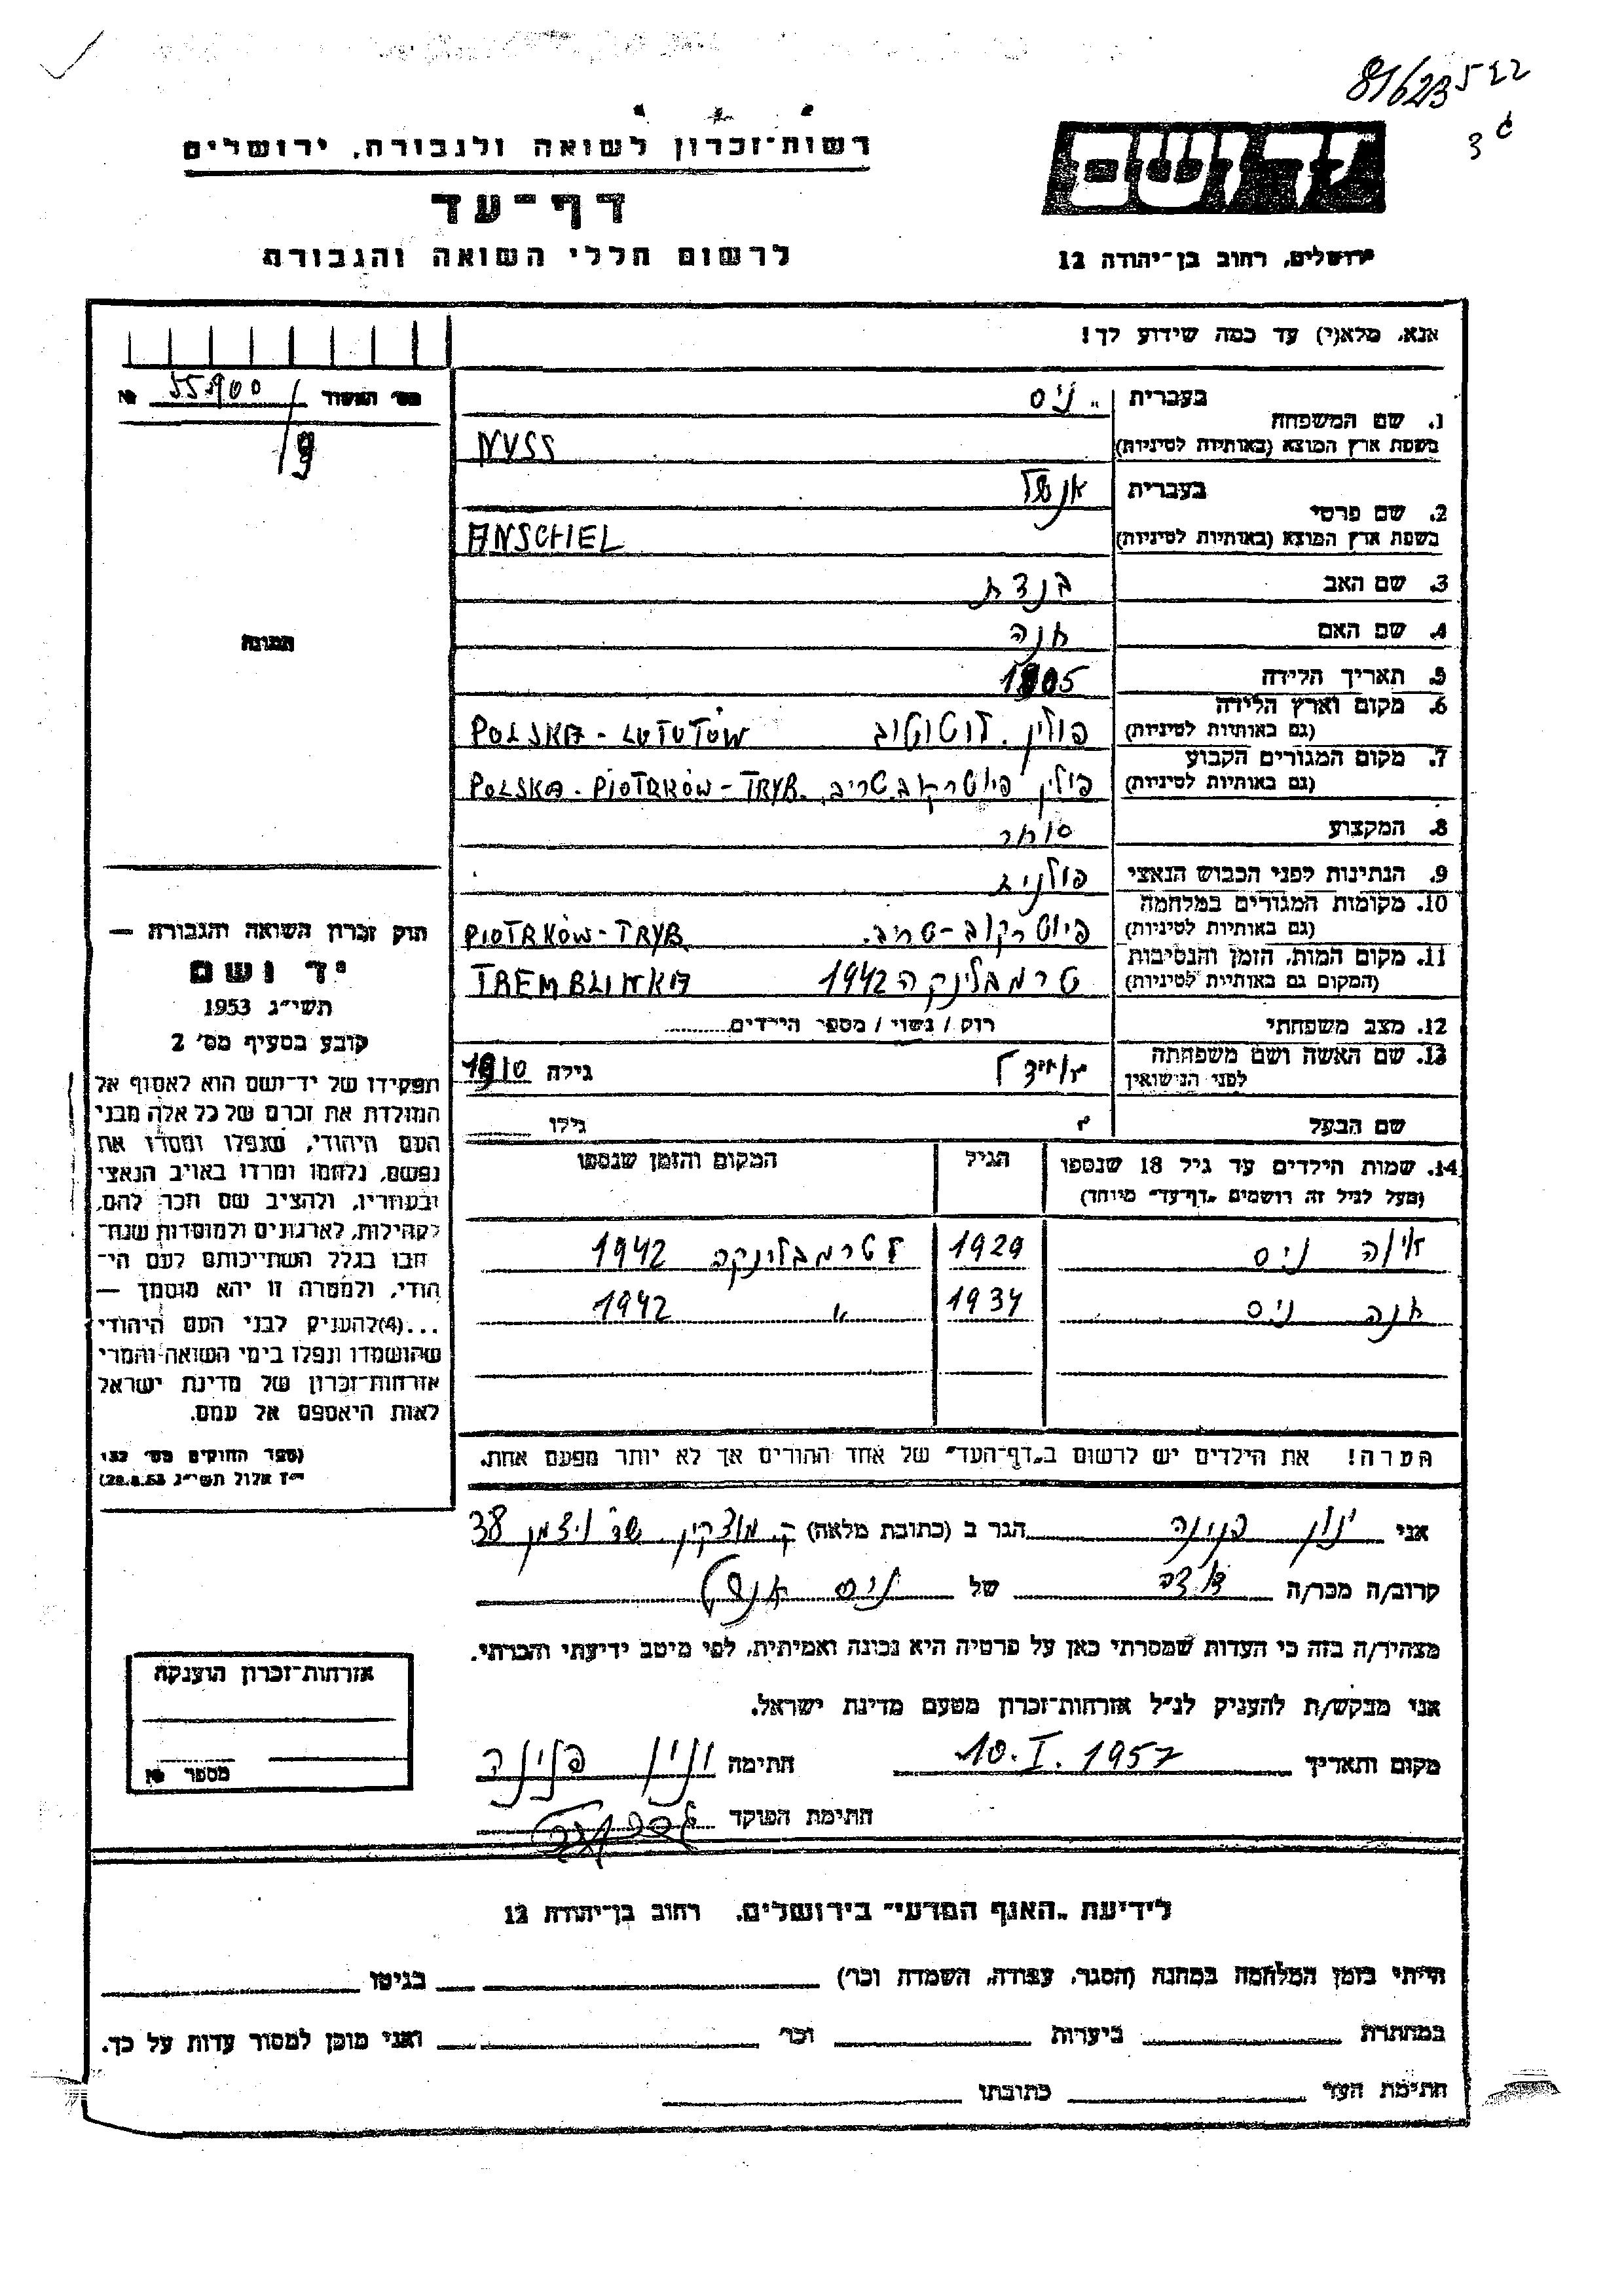 רשות־זכרון לשואה ולגבורה, ירושלים
דף־עד
לרשום חללי השואה והגבורה
ידושם
ירושלים, רחוב בן־יהודה 12
אנא, מלא(י) עד כמה שידוע לך!
1. שם המשפחה
בעברית ניס
בשפת ארץ המוצא (באותיות לטיניות) NYSS
2. שם פרטי
בעברית אנשל
בשפת ארץ המוצא (באותיות לטיניות) ANSCHEL
3. שם האב בנדת
4. שם האם חנה
5. תאריך הלידה 1905
6. מקום וארץ הלידה
(גם באותיות לטיניות) פולין. לוטוטוב POLSKA - LUTUTÓW
7. מקום המגורים הקבוע
(גם באותיות לטיניות) פולין פיוטרקוב טריב. POLSKA - PIOTRKÓW - TRYB.
8. המקצוע סוחר
9. הנתינות לפני הכבוש הנאצי פולנית
10. מקומות המגורים במלחמה
(גם באותיות לטיניות) פיוטרקוב-טריב. PIOTRKÓW-TRYB.
11. מקום המות, הזמן והנסיבות
(המקום גם באותיות לטיניות) טרמבלינקה 1942 TREMBLINKA
12. מצב משפחתי רוק / נשוי / מספר הילדים
13. שם האשה ושם משפחתה
לפני הנישואין גילה 1910
שם הבעל גילו
14. שמות הילדים עד גיל 18 שנספו
(מעל לגיל זה רושמים „דף־עד" מיוחד)
הגיל
המקום והזמן שנספו
ניס 1929 טרמבלינקה 1942
חנה ניס 1934 " 1942
הערה! את הילדים יש לרשום ב„דף־העד" של אחד ההורים אך לא יותר מפעם אחת.
אני ינון פנינה הגר ב (כתובת מלאה) ק. מוצקין שד' ויצמן 38
קרוב/ה מכר/ה דודה של ניס אנשל
מצהיר/ה בזה כי העדות שמסרתי כאן על פרטיה היא נכונה ואמיתית, לפי מיטב ידיעתי והכרתי.
אני מבקש/ת להעניק לנ"ל אזרחות־זכרון מטעם מדינת ישראל.
מקום ותאריך 10. I. 1957 חתימה ינון פנינה
חתימת הפוקד
מס' האשור 55900 №
תמונה
חוק זכרון השואה והגבורה —
יד ושם
תשי"ג 1953
קובע בסעיף מס' 2
תפקידו של יד־ושם הוא לאסוף אל
המולדת את זכרם של כל אלה מבני
העם היהודי, שנפלו ומסרו את
נפשם, נלחמו ומרדו באויב הנאצי
ובעוזריו, ולהציב שם וזכר להם,
לקהילות, לארגונים ולמוסדות שנח־
רבו בגלל השתייכותם לעם הי־
הודי, ולמטרה זו יהא מוסמך —
...(4)להעניק לבני העם היהודי
שהושמדו ונפלו בימי השואה והמרי
אזרחות־זכרון של מדינת ישראל
לאות היאספם אל עמם.
(ספר החוקים מס' 132
י"ז אלול תשי"ג 28.8.53)
אזרחות־זכרון הוענקה
מספר №
לידיעת „האגף המדעי" בירושלים, רחוב בן־יהודה 12
הייתי בזמן המלחמה במחנה (הסגר, עבודה, השמדה וכו') בגיטו
במחתרת ביערות וכו' ואני מוכן למסור עדות על כך.
חתימת העד כתובתו